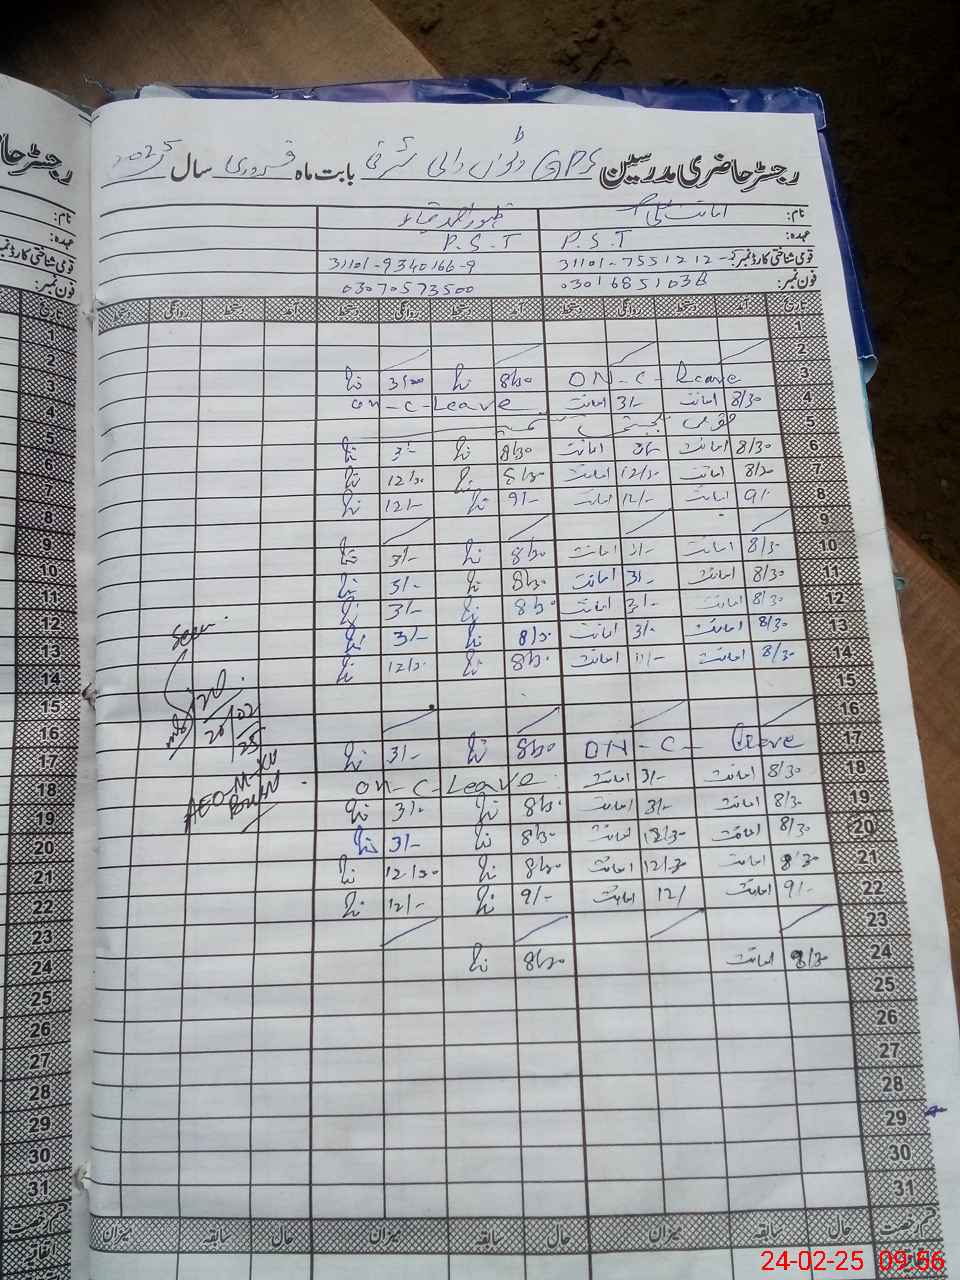 رجسٹر حاضری مدرسین GPS والی شرقی بابت ماہ فروری سال 2025
نام: امانت علی ظہور احمد ضیاء
عہدہ: P.S.T P.S.T
قومی شناختی کارڈ نمبر: 31101-7551212- 31101-9340166-9
فون نمبر: 03070573500
تاریخ آمد دستخط روانگی دستخط آمد دستخط روانگی دستخط آمد دستخط روانگی دستخط
1
2
3 ON-C-Leave 8/30 3/00
4 8/30 امانت 3/- امانت on-c-Leave
5
6 8/30 امانت 3/- امانت 8/30 3/-
7 8/30 امانت 12/30 امانت 8/30 12/30
8 9/- امانت 12/- امانت 9/- 12/-
9
10 8/30 امانت 3/- امانت 8/30 3/-
11 8/30 امانت 3/- امانت 8/30 3/-
12 8/30 امانت 3/- امانت 8/30 3/-
13 8/30 امانت 3/- امانت 8/30 3/-
14 8/30 امانت 11/- امانت 8/30 12/30
15
16
17 ON-C-Leave 8/30 3/-
18 8/30 امانت 3/- امانت on-c-Leave
19 8/30 امانت 3/- امانت 8/30 3/-
20 8/30 امانت 12/30 امانت 8/30 3/-
21 8/30 امانت 12/30 امانت 8/30 12/30
22 9/- امانت 12/ امانت 9/- 12/-
23
24 8/30 امانت 8/30
25
26
27
28
29
30
31
Seen
20/02/25
AEO-M-XII
قسم رخصت حال سابقہ میزان حال سابقہ میزان حال سابقہ میزان
24-02-25 09:56